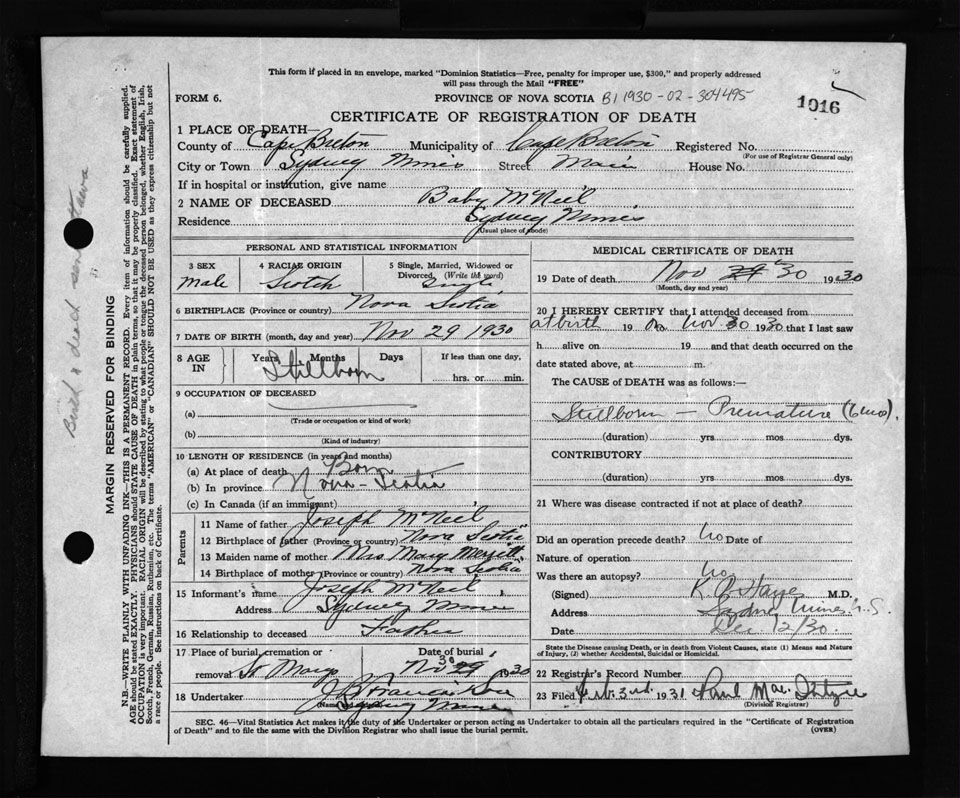 This form if placed in an envelope, marked "Dominion Statistics—Free, penalty for improper use, $300," and properly addressed
will pass through the Mail "FREE"
FORM 6. PROVINCE OF NOVA SCOTIA B1 1930-02-304495 1016
CERTIFICATE OF REGISTRATION OF DEATH
1 PLACE OF DEATH—
County of Cape Breton Municipality of Cape Breton Registered No.
(For use of Registrar General only)
City or Town Sydney Mines Street Main House No.
If in hospital or institution, give name
2 NAME OF DECEASED Baby McNeil
Residence Sydney Mines
(Usual place of abode)
PERSONAL AND STATISTICAL INFORMATION
3 SEX 4 RACIAL ORIGIN 5 Single, Married, Widowed or
Divorced. (Write the word)
Male Scotch Single
6 BIRTHPLACE (Province or country) Nova Scotia
7 DATE OF BIRTH (month, day and year) Nov 29 1930
8 AGE IN Years Months Days If less than one day,
Stillborn hrs. or min.
9 OCCUPATION OF DECEASED
(a)
(Trade or occupation or kind of work)
(b)
(Kind of industry)
10 LENGTH OF RESIDENCE (in years and months)
(a) At place of death Born
(b) In province Nova-Scotia
(c) In Canada (if an immigrant)
Parents
11 Name of father Joseph McNeil
12 Birthplace of father (Province or country) Nova Scotia
13 Maiden name of mother Mrs Mary Merritt
14 Birthplace of mother (Province or country) Nova Scotia
15 Informant's name Joseph McNeil
Address Sydney Mines
16 Relationship to deceased Father
17 Place of burial, cremation or Date of burial
removal St Marys Nov 30 29 1930
18 Undertaker
Sydney Mines
MEDICAL CERTIFICATE OF DEATH
19 Date of death Nov 30 1930
(Month, day and year)
20 I HEREBY CERTIFY that I attended deceased from
at birth 19 to Nov 30 1930 that I last saw
h alive on 19 and that death occurred on the
date stated above, at m.
The CAUSE of DEATH was as follows:—
Stillborn — Premature (6 mos).
(duration) yrs. mos. dys.
CONTRIBUTORY
(duration) yrs. mos. dys.
21 Where was disease contracted if not at place of death?
Did an operation precede death? No Date of
Nature of operation
Was there an autopsy? No
(Signed) M.D.
Address Sydney Mines N.S.
Date Dec 12/30.
State the Disease causing Death, or in death from Violent Causes, state (1) Means and Nature
of Injury, (2) whether Accidental, Suicidal or Homicidal.
22 Registrar's Record Number
23 Filed 3rd 1931 Paul Mac
(Division Registrar)
SEC. 46—Vital Statistics Act makes it the duty of the Undertaker or person acting as Undertaker to obtain all the particulars required in the "Certificate of Registration
of Death" and to file the same with the Division Registrar who shall issue the burial permit. (OVER)
MARGIN RESERVED FOR BINDING
N.B.—WRITE PLAINLY WITH UNFADING INK—THIS IS A PERMANENT RECORD. Every item of information should be carefully supplied.
AGE should be stated EXACTLY. PHYSICIANS should STATE CAUSE OF DEATH in plain terms, so that it may be properly classified. Exact statement of
OCCUPATION is very important. RACIAL ORIGIN will be described by stating to what people or tongue the deceased person belonged, whether English, Irish,
Scotch, French, German, Russian, Ruthenian, etc. The terms "AMERICAN" or "CANADIAN" SHOULD NOT BE USED as they express citizenship but not
a race or people. See instructions on back of Certificate.